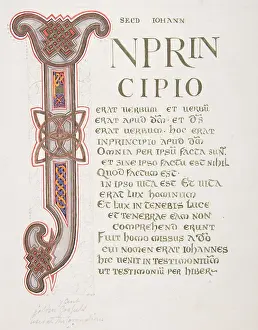 SECD IOHANN
INPRIN
CIPIO
ERAT UERBUM ET UERBŪ
ERAT APUD DM̄ ET DS̄
ERAT UERBUM· HOC ERAT
INPRINCIPIO APUD DM̄
OMNIA PER IPSŪ FACTA SUNT
ET SINE IPSO FACTU EST NIHIL
QUOD FACTUM EST·
IN IPSO UITA EST ET UITA
ERAT LUX HOMINUM
ET LUX IN TENEBRIS LUCE
ET TENEBRAE EAM NON
COMPREHEND ERUNT
FUIT HOMO MISSUS A DŌ
CUI NOMEN ERAT IOHANNES
HIC UENIT IN TESTIMONIUM
UT TESTIMONIUM PER HIBER